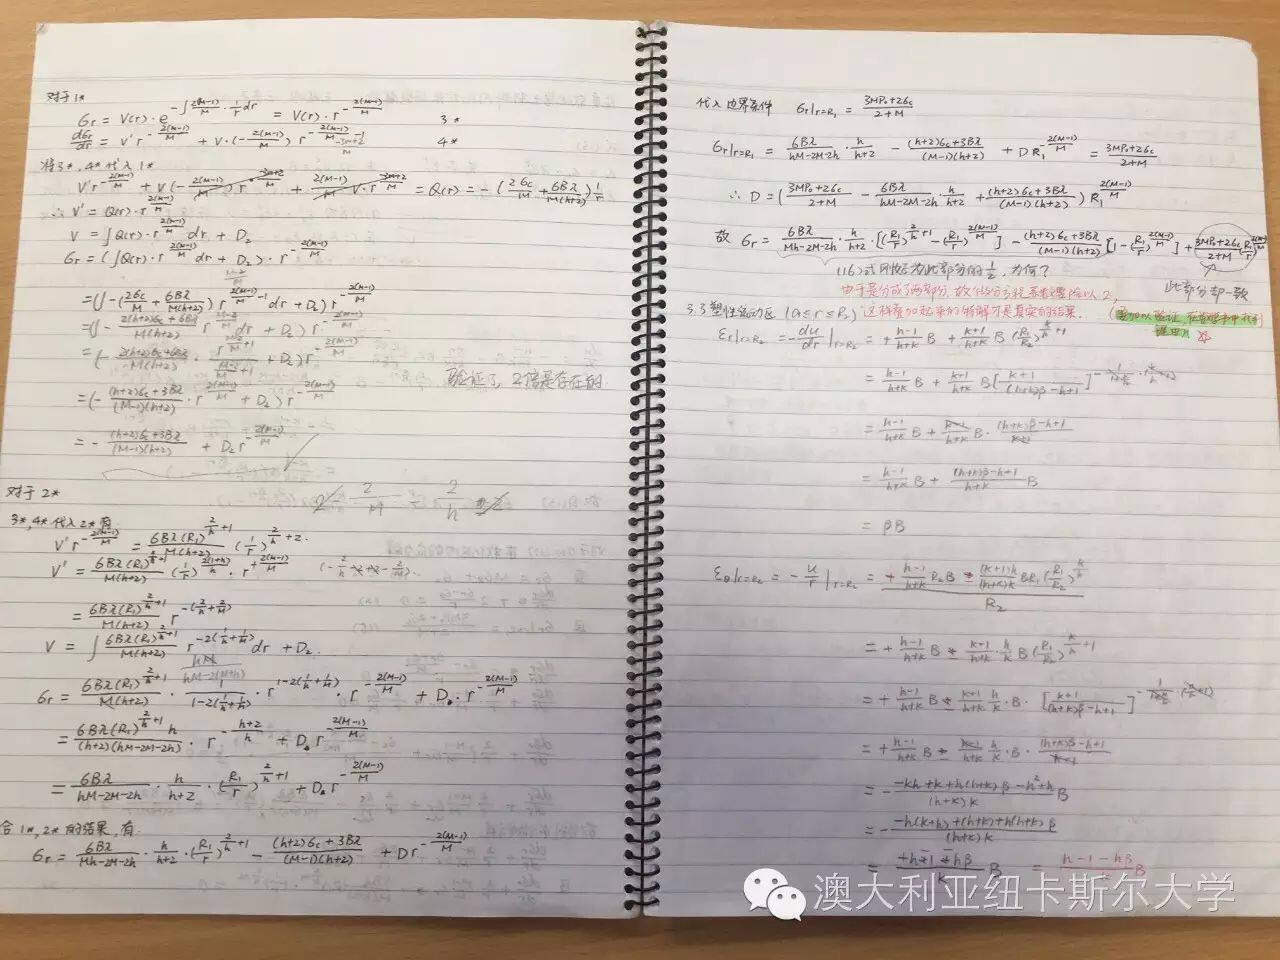 对于1*
σr = V(r)·e^{-∫\frac{2(M-1)}{M}·\frac{1}{r}dr} = V(r)·r^{-\frac{2(M-1)}{M}} 3*
\frac{dσr}{dr} = V'r^{-\frac{2(M-1)}{M}} + V·(-\frac{2(M-1)}{M}) r^{-\frac{2(M-1)}{M}-1} 4*
将3*,4*代入1*
V'r^{-\frac{2(M-1)}{M}} + V(-\frac{2(M-1)}{M}) r^{-\frac{3M+2}{M}} + \frac{2(M-1)}{M} V·r^{-\frac{3M+2}{M}} = Q(r) = -(\frac{2σc}{M}+\frac{6Bλ}{M(h+2)})\frac{1}{r}
∴ V' = Q(r)·r^{\frac{2(M-1)}{M}}
V = ∫Q(r)·r^{\frac{2(M-1)}{M}}dr + D₂
σr = (∫Q(r)·r^{\frac{2(M-1)}{M}}dr + D₂)·r^{-\frac{2(M-1)}{M}}
=(∫-(\frac{2σc}{M}+\frac{6Bλ}{M(h+2)}) r^{\frac{2(M-1)}{M}-1}dr + D₂) r^{-\frac{2(M-1)}{M}}
=(∫-\frac{2(h+2)σc+6Bλ}{M(h+2)} r dr + D₂) r^{-\frac{2(M-1)}{M}}
=(-\frac{2(h+2)σc+6Bλ}{M(h+2)} + D₂) r^{-\frac{2(M-1)}{M}}
验证了,2倍是存在的
=(-\frac{(h+2)σc+3Bλ}{(M-1)(h+2)}·r^{\frac{2(M-1)}{M}} + D₂) r^{-\frac{2(M-1)}{M}}
= -\frac{(h+2)σc+3Bλ}{(M-1)(h+2)} + D₂r^{-\frac{2(M-1)}{M}}
对于2*
3*,4*代入2*有
V'r^{-\frac{2(M-1)}{M}} = \frac{6Bλ(R₁)^{\frac{2}{h}+1}}{M(h+2)}(\frac{1}{r})^{\frac{2}{h}+2}
V' = \frac{6Bλ(R₁)^{\frac{2}{h}+1}}{M(h+2)}(\frac{1}{r})^{\frac{2(1+h)}{h}}·r^{\frac{2(M-1)}{M}}
= \frac{6Bλ(R₁)^{\frac{2}{h}+1}}{M(h+2)} r^{-(\frac{2}{h}+\frac{2}{M})}
V = ∫\frac{6Bλ(R₁)^{\frac{2}{h}+1}}{M(h+2)} r^{-2(\frac{1}{h}+\frac{1}{M})}dr + D₂.
σr = \frac{6Bλ(R₁)^{\frac{2}{h}+1}}{M(h+2)}·\frac{1}{1-2(\frac{1}{h}+\frac{1}{M})}·r^{1-2(\frac{1}{h}+\frac{1}{M})}·r^{-\frac{2(M-1)}{M}} + D₂·r^{-\frac{2(M-1)}{M}}
= \frac{6Bλ(R₁)^{\frac{2}{h}+1}h}{(h+2)(hM-2M-2h)}·r^{-\frac{h+2}{h}} + D₂r^{-\frac{2(M-1)}{M}}
= \frac{6Bλ}{hM-2M-2h}·\frac{h}{h+2}·(\frac{R₁}{r})^{\frac{2}{h}+1} + D₂r^{-\frac{2(M-1)}{M}}
合1*,2*的结果,有.
σr = \frac{6Bλ}{Mh-2M-2h}·\frac{h}{h+2}·(\frac{R₁}{r})^{\frac{2}{h}+1} - \frac{(h+2)σc+3Bλ}{(M-1)(h+2)} + Dr^{-\frac{2(M-1)}{M}}
代入边界条件 σr|r=R₁ = \frac{3MP₀+2σc}{2+M}
σr|r=R₁ = \frac{6Bλ}{hM-2M-2h}·\frac{h}{h+2} - \frac{(h+2)σc+3Bλ}{(M-1)(h+2)} + DR₁^{-\frac{2(M-1)}{M}} = \frac{3MP₀+2σc}{2+M}
∴ D = (\frac{3MP₀+2σc}{2+M} - \frac{6Bλ}{hM-2M-2h}·\frac{h}{h+2} + \frac{(h+2)σc+3Bλ}{(M-1)(h+2)}) R₁^{\frac{2(M-1)}{M}}
故 σr = \frac{6Bλ}{Mh-2M-2h}·\frac{h}{h+2}·[(\frac{R₁}{r})^{\frac{2}{h}+1}-(\frac{R₁}{r})^{\frac{2(M-1)}{M}}] - \frac{(h+2)σc+3Bλ}{(M-1)(h+2)}[1-(\frac{R₁}{r})^{\frac{2(M-1)}{M}}] + \frac{3MP₀+2σc}{2+M}(\frac{R₁}{r})^{\frac{2(M-1)}{M}}
(16)式刚好为此部分的½,为何?
此部分却一致
由于是分成了两部分,故 系数要除以2,
3.3 塑性流动区 (a≤r≤R₂) 这样叠加起来的特解才是真实的结果.
εr|r=R₂ = -\frac{du}{dr}|r=R₂ = +\frac{h-1}{h+k}B + \frac{k+1}{h+k}B(\frac{R₁}{R₂})^{\frac{k}{h}+1}
= \frac{h-1}{h+k}B + \frac{k+1}{h+k}B[\frac{k+1}{(h+k)β-h+1}]
= \frac{h-1}{h+k}B + \frac{k+1}{h+k}B·\frac{(h+k)β-h+1}{k+1}
= \frac{h-1}{h+k}B + \frac{(h+k)β-h+1}{h+k}B
= βB
εθ|r=R₂ = -\frac{u}{r}|r=R₂ = \frac{+\frac{h-1}{h+k}R₂B - \frac{(k+1)h}{(h+k)k}BR₁(\frac{R₁}{R₂})^{\frac{k}{h}}}{R₂}
= +\frac{h-1}{h+k}B - \frac{k+1}{h+k}·\frac{h}{k}B(\frac{R₁}{R₂})^{\frac{k}{h}+1}
= +\frac{h-1}{h+k}B - \frac{k+1}{h+k}\frac{h}{k}·B·[\frac{k+1}{(h+k)β-h+1}]
= +\frac{h-1}{h+k}B - \frac{k+1}{h+k}\frac{h}{k}·B·\frac{(h+k)β-h+1}{k+1}
= -\frac{-kh+k+h(h+k)β-h²+h}{(h+k)k}B
= -\frac{-h(k+h)+(h+k)+h(h+k)β}{(h+k)k}
= \frac{+h-1-hβ}{k}B = \frac{h-1-hβ}{k}B
澳大利亚纽卡斯尔大学